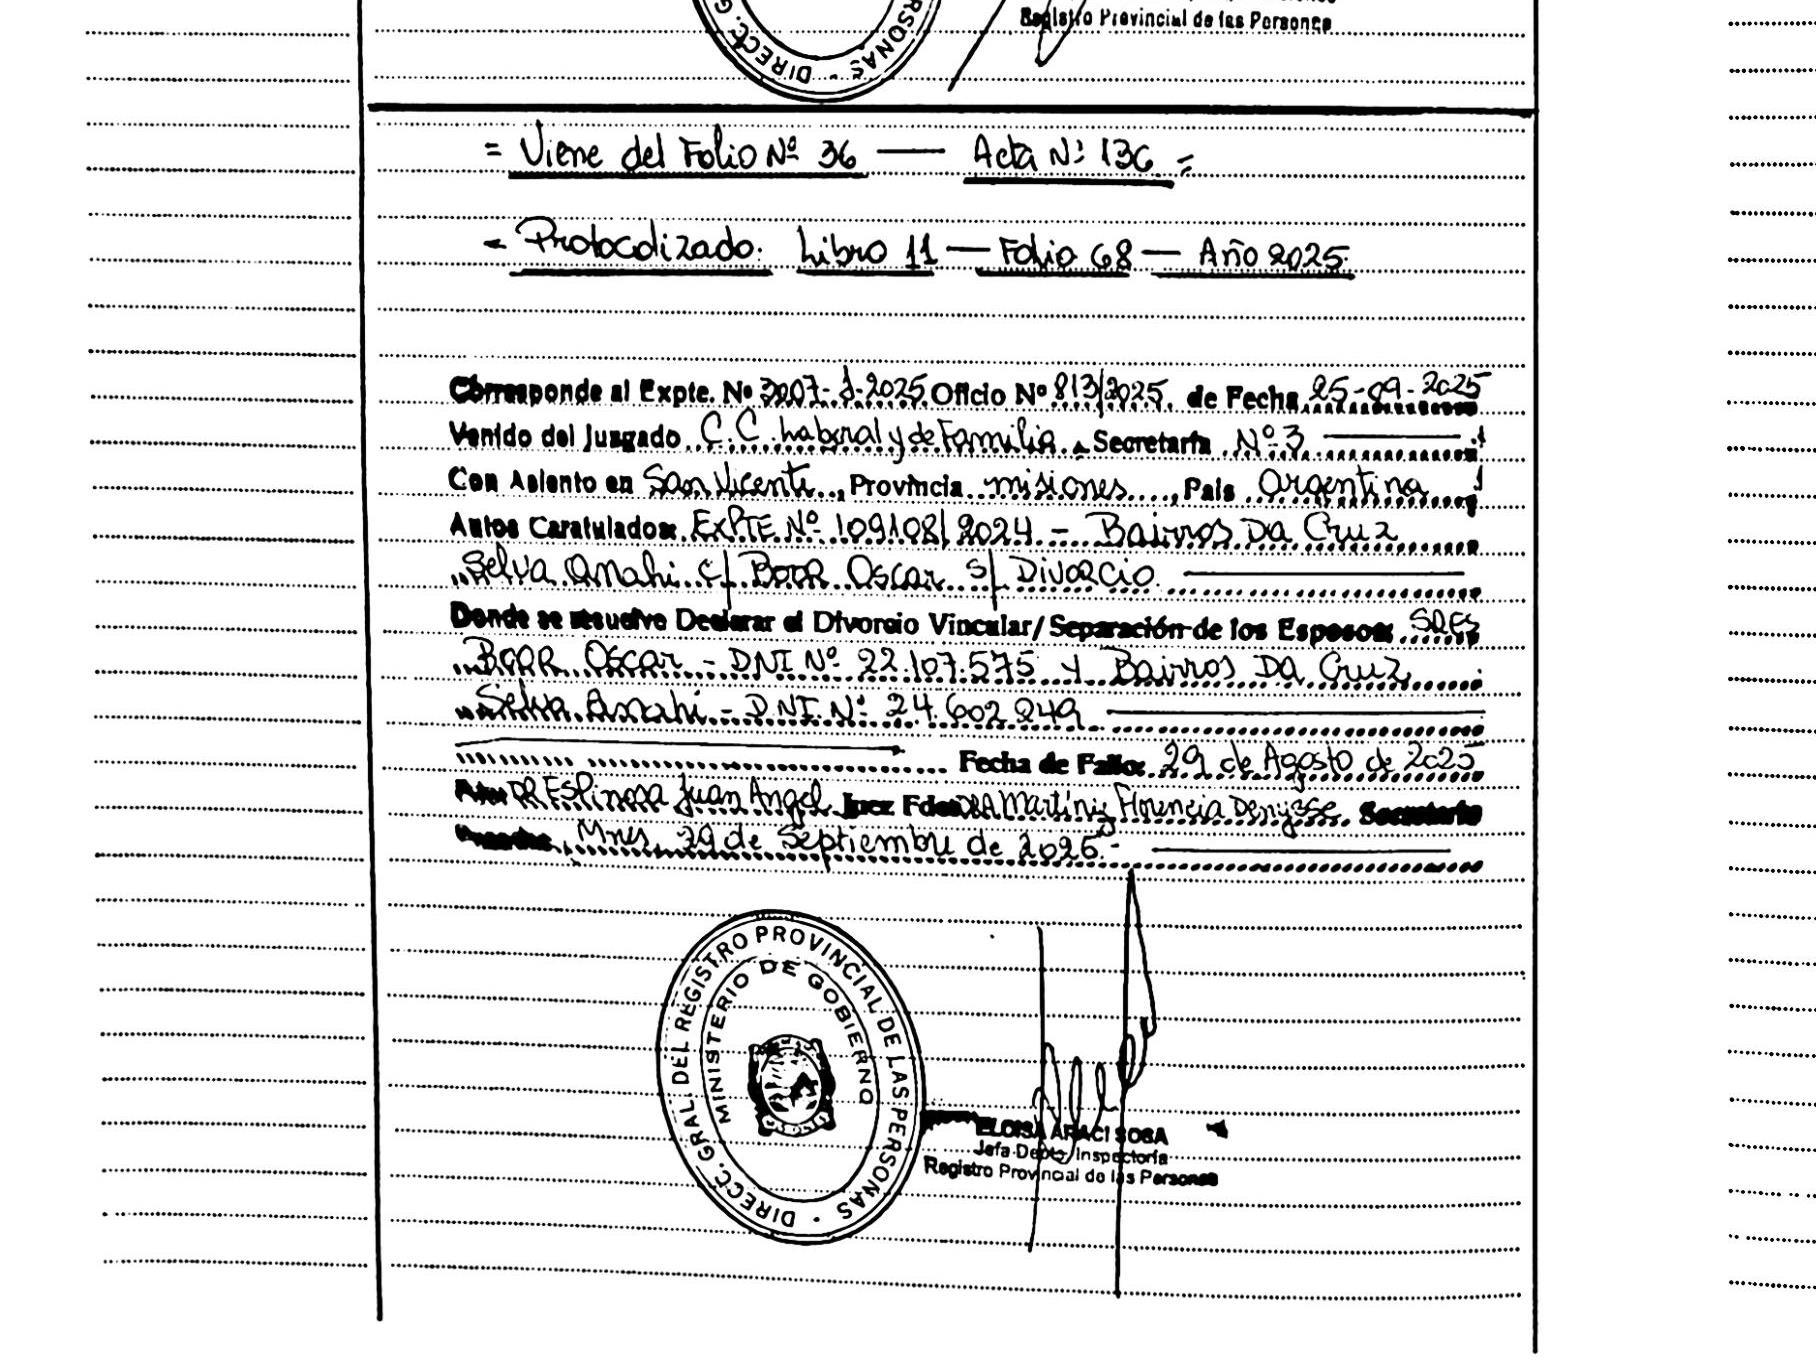 DIRECC. G
RSONAS
Registro Provincial de las Personas
= Viene del Folio Nº 36 — Acta Nº 136 =
- Protocolizado. Libro 11 — Folio 68 — Año 2025.
Corresponde al Expte. Nº 3007-J-2025 Oficio Nº 813/2025. de Fecha 25-09-2025
Venido del Juzgado C.C. Laboral y de Familia, Secretaría Nº 3
Con Asiento en San Vicente, Provincia misiones, País Argentina
Autos Caratulados: EXPTE. Nº 109108/2024 - Bairros Da Cruz
Selva Anahi c/ Boor Oscar s/ Divorcio
Donde se resuelve Declarar el Divorcio Vincular/Separación de los Esposos: SRES
Oscar - DNI Nº 22.107.575 y Bairros Da Cruz
Selva Anahi - D.N.I. Nº 24.602.249
Fecha de Fallo: 29 de Agosto de 2025
DR Espinosa Juan Angel Juez Fdo: DRA Florencia Denysse. Secretaria
Mnes, 29 de Septiembre de 2025.-
DIRECC. GRAL. DEL REGISTRO PROVINCIAL DE LAS PERSONAS
MINISTERIO DE GOBIERNO
ELOISA ARACI SOSA
Jefa Depto. Inspectoría
Registro Provincial de las Personas